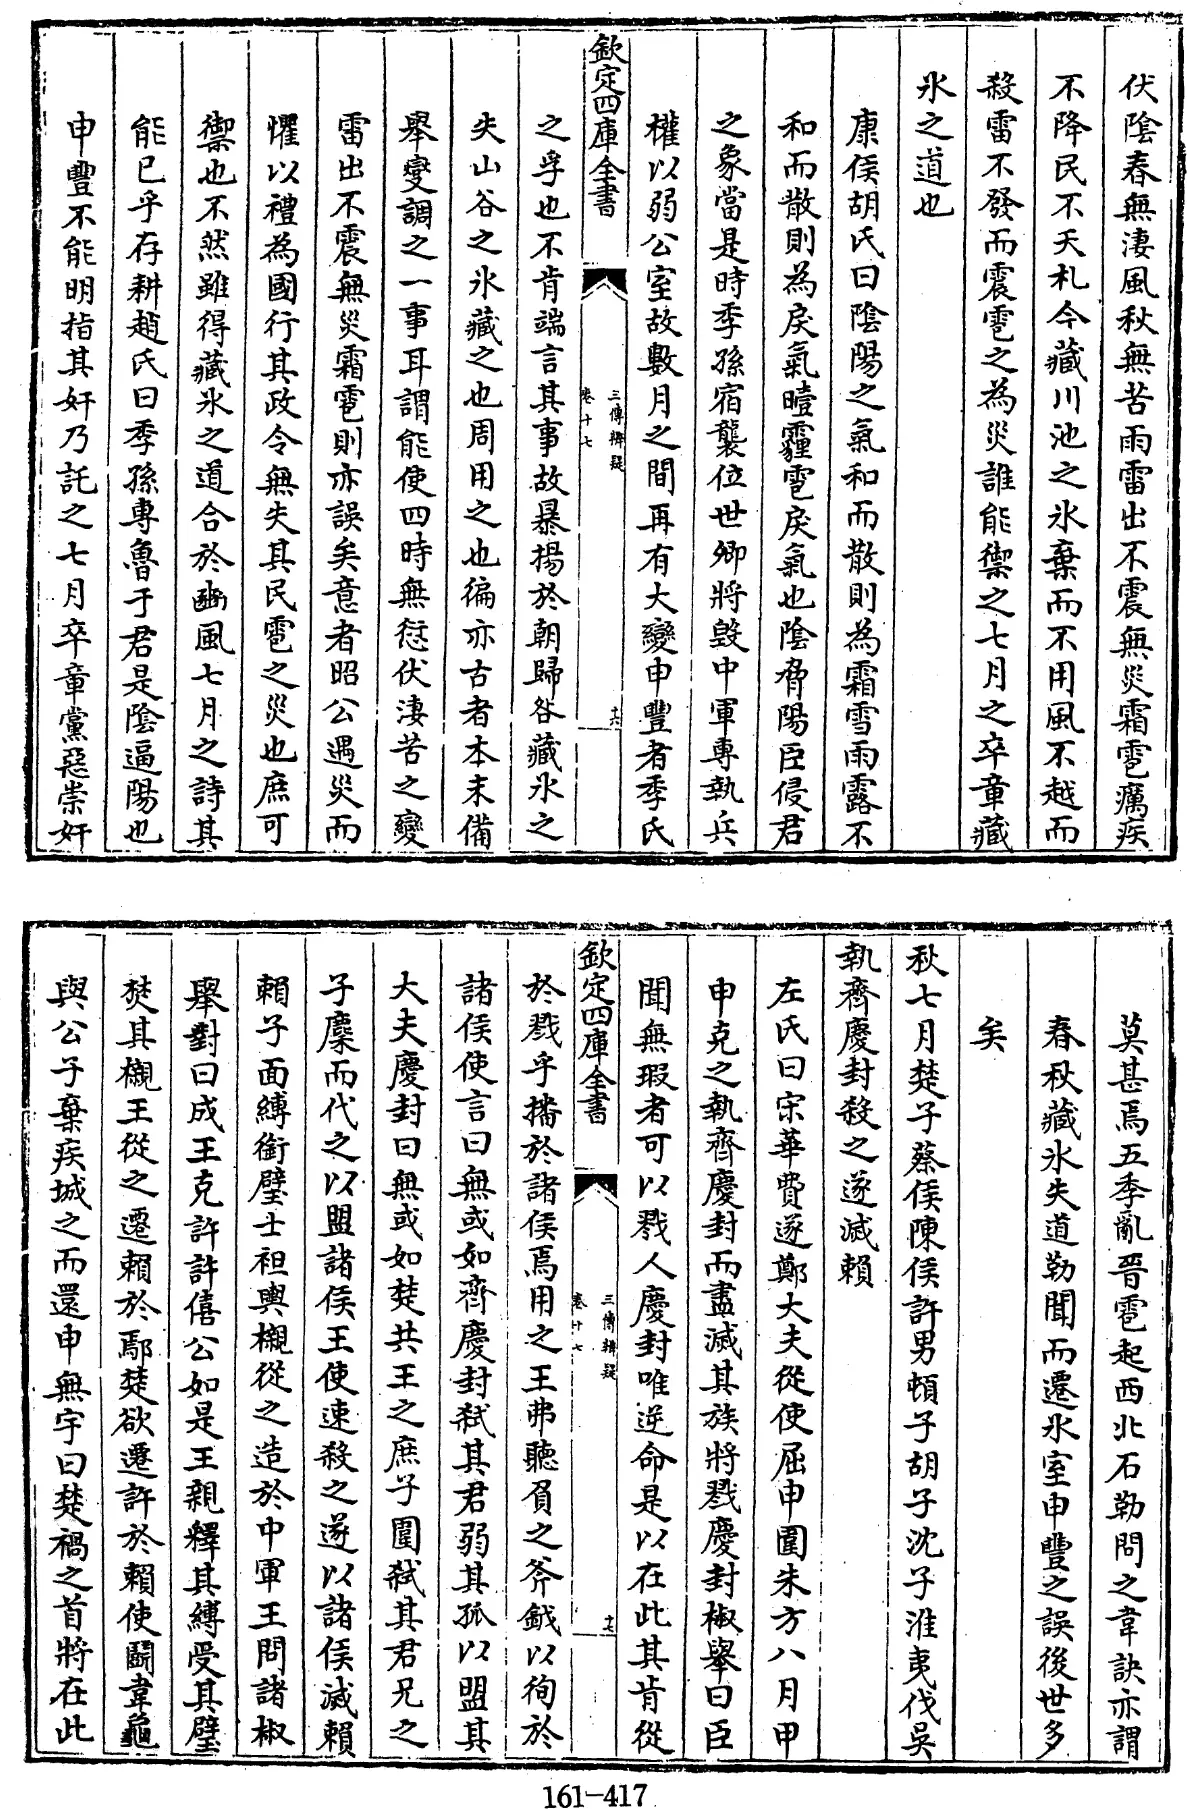 伏陰春無淒風秋無苦雨雷出不震無災霜雹癘疾
不降民不夭札今藏川池之氷棄而不用風不越而
殺雷不發而震雹之為災誰能禦之七月之卒章藏
氷之道也
康侯胡氏曰陰陽之氣和而散則為霜雪雨露不
和而散則為戾氣曀霾雹戾氣也陰脅陽臣侵君
之象當是時季孫宿襲位世卿將毀中軍專執兵
權以弱公室故數月之間再有大變申豐者季氏
欽定四庫全書
三傳辨疑
卷十七
十六
之孚也不肯端言其事故暴揚於朝歸咎藏氷之
失山谷之氷藏之也周用之也徧亦古者本末備
舉變調之一事耳謂能使四時無愆伏淒苦之變
雷出不震無災霜雹則亦誤矣意者昭公遇災而
懼以禮為國行其政令無失其民雹之災也庶可
禦也不然雖得藏氷之道合於豳風七月之詩其
能已乎存耕趙氏曰季孫專魯于君是陰逼陽也
申豐不能明指其奸乃託之七月卒章黨惡崇奸
莫甚焉五季亂晉雹起西北石勒問之韋訣亦謂
春秋藏氷失道勒聞而遷氷室申豐之誤後世多
矣
秋七月楚子蔡侯陳侯許男頓子胡子沈子淮夷伐吳
執齊慶封殺之遂滅賴
左氏曰宋華費遂鄭大夫從使屈申圍朱方八月甲
申克之執齊慶封而盡滅其族將戮慶封椒舉曰臣
聞無瑕者可以戮人慶封唯逆命是以在此其肯從
欽定四庫全書
三傳辨疑
卷十七
十七
於戮乎播於諸侯焉用之王弗聽負之斧鉞以徇於
諸侯使言曰無或如齊慶封弒其君弱其孤以盟其
大夫慶封曰無或如楚共王之庶子圍弒其君兄之
子麇而代之以盟諸侯王使速殺之遂以諸侯滅賴
賴子面縛銜璧士袒輿櫬從之造於中軍王問諸椒
舉對曰成王克許許僖公如是王親釋其縛受其璧
焚其櫬王從之遷賴於鄢楚欲遷許於賴使鬬韋龜
與公子棄疾城之而還申無宇曰楚禍之首將在此
161-417